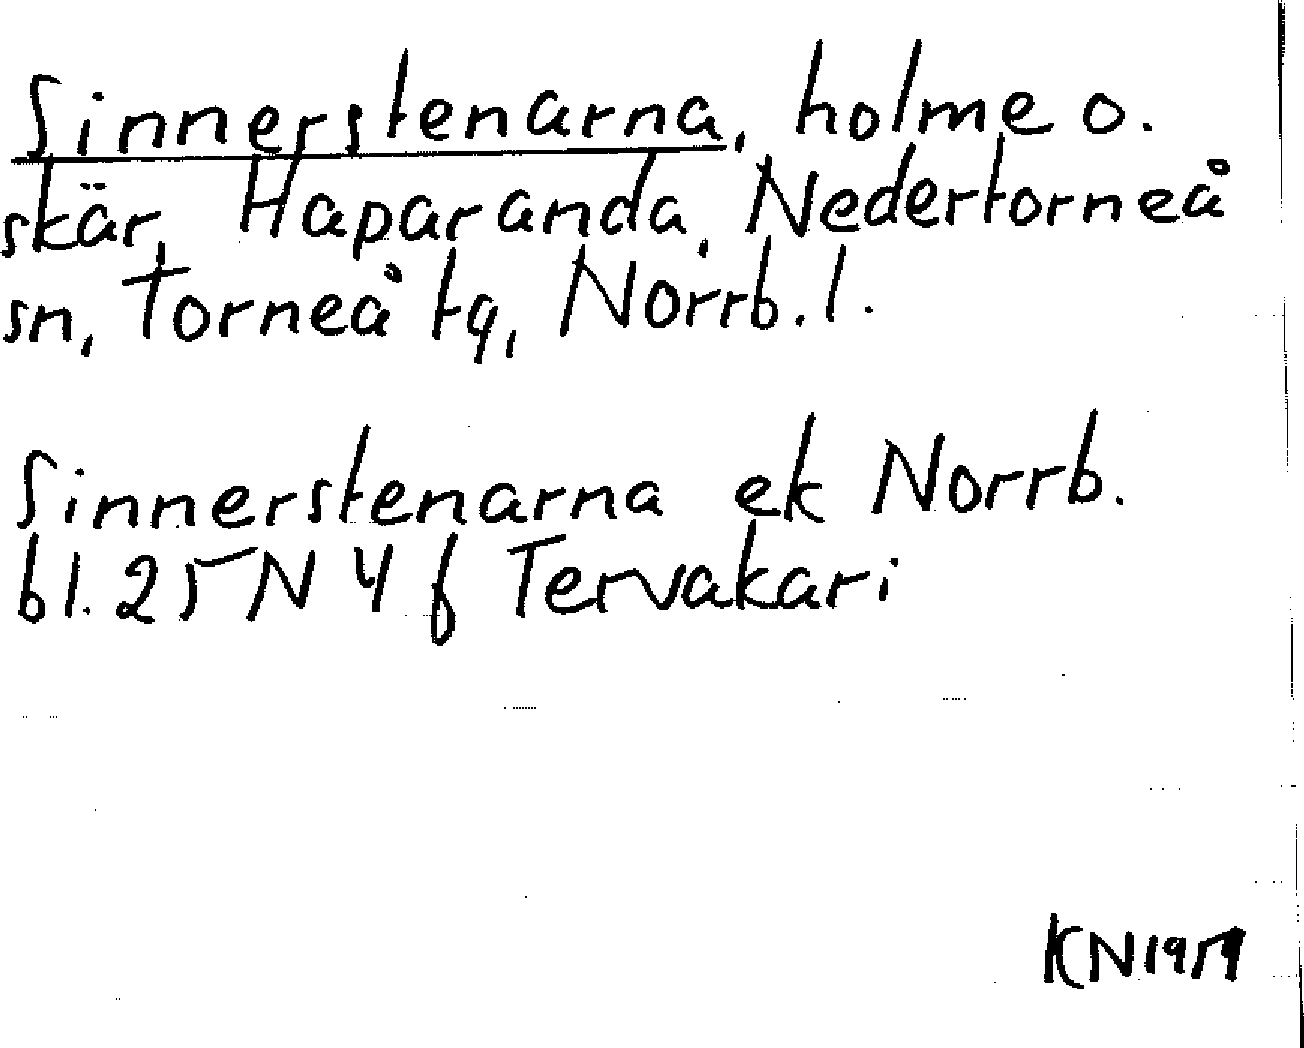 Sinnerstenarna, holme o.
skär, Haparanda, Nedertorneå
sn, Torneå tg, Norrb. l.
Sinnerstenarna ek Norrb.
bl. 25 N 4 f Tervakari